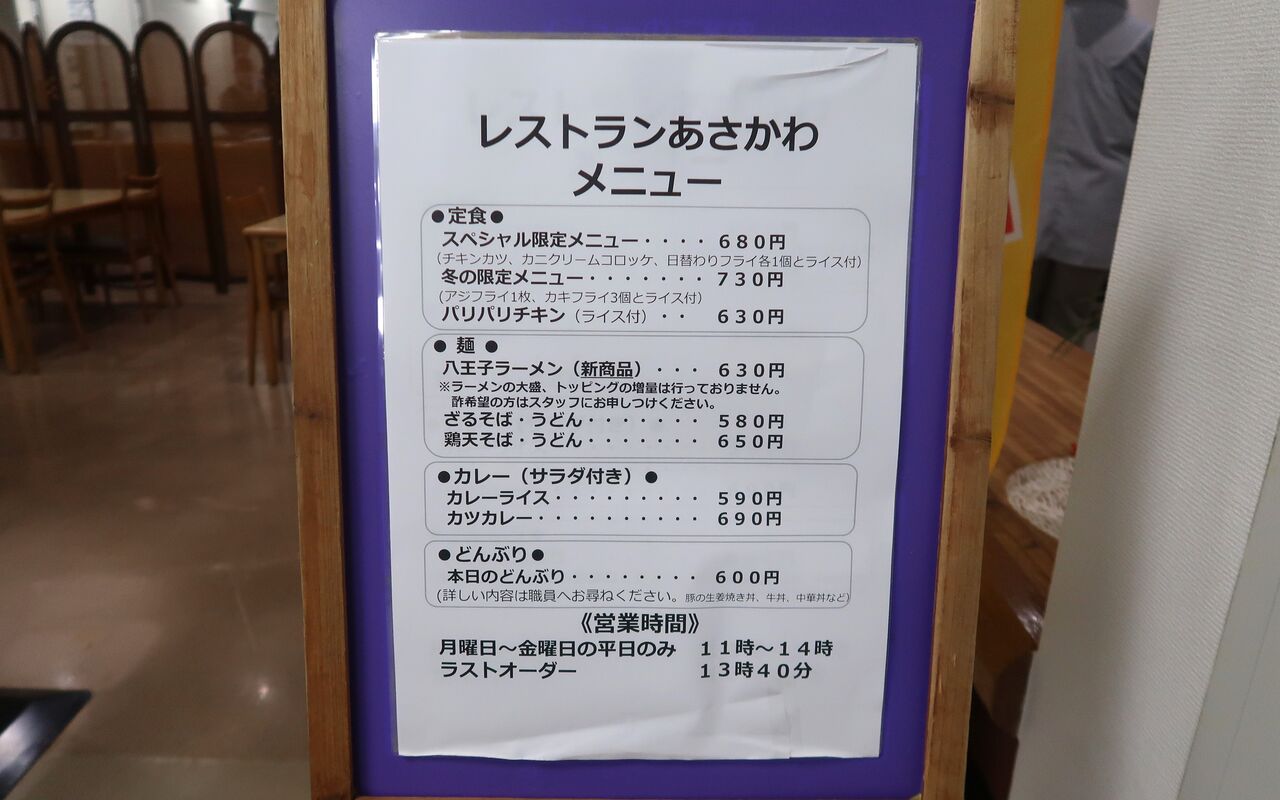 レストランあさかわ
メニュー
●定食●
スペシャル限定メニュー・・・・ 680円
(チキンカツ、カニクリームコロッケ、日替わりフライ各1個とライス付)
冬の限定メニュー・・・・・・・ 730円
(アジフライ1枚、カキフライ3個とライス付)
パリパリチキン（ライス付）・・ 630円
● 麺 ●
八王子ラーメン（新商品）・・・ 630円
※ラーメンの大盛、トッピングの増量は行っておりません。
酢希望の方はスタッフにお申しつけください。
ざるそば・うどん・・・・・・・ 580円
鶏天そば・うどん・・・・・・・ 650円
●カレー（サラダ付き）●
カレーライス・・・・・・・・・ 590円
カツカレー・・・・・・・・・・ 690円
●どんぶり●
本日のどんぶり・・・・・・・・ 600円
(詳しい内容は職員へお尋ねください。豚の生姜焼き丼、牛丼、中華丼など)
《営業時間》
月曜日～金曜日の平日のみ 11時～14時
ラストオーダー 13時40分